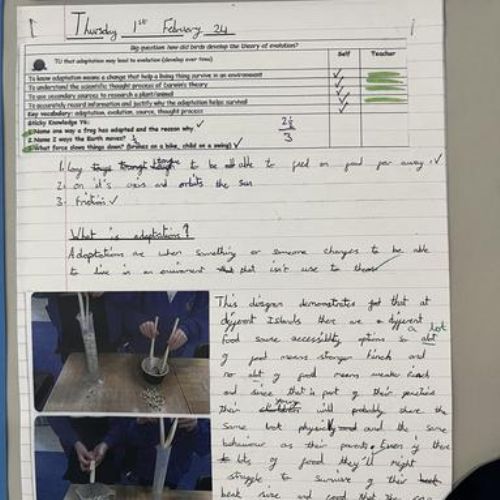 Thursday 1st February 24
Big question: how did birds develop the theory of evolution?
TU that adaptation may lead to evolution (develop over time)
Self
Teacher
To know adaptation means a change that help a living thing survive in an environment
To understand the scientific thought process of Darwin's theory
To use secondary sources to research a plant/animal
To accurately record information and justify why the adaptation helps survival
Key Vocabulary: adaptation, evolution, source, thought, process
Sticky Knowledge Y6:
1. Name one way a frog has adapted and the reason why
2. Name 2 ways the Earth moves? ½
3. What force slows things down? (brakes on a bike, child on a swing)
2½
3
1. long tongue to be able to feed on food far away
2. on it's axis and orbits the sun
3. Friction
What is adaptations?
Adaptations are when something or someone changes to be able
to live in an enviroment that isn't use to them
This diagram demonstrates that at
different Islands there are different
food source accessiblity options so a lot
of food means stronger and
no alot of food means weaker
and since that is part of their genetics
their young will probably share the
same look physically and the same
behaviour as their parents. Even if there
lots of food they'll might
struggle to survive if their
beak size and